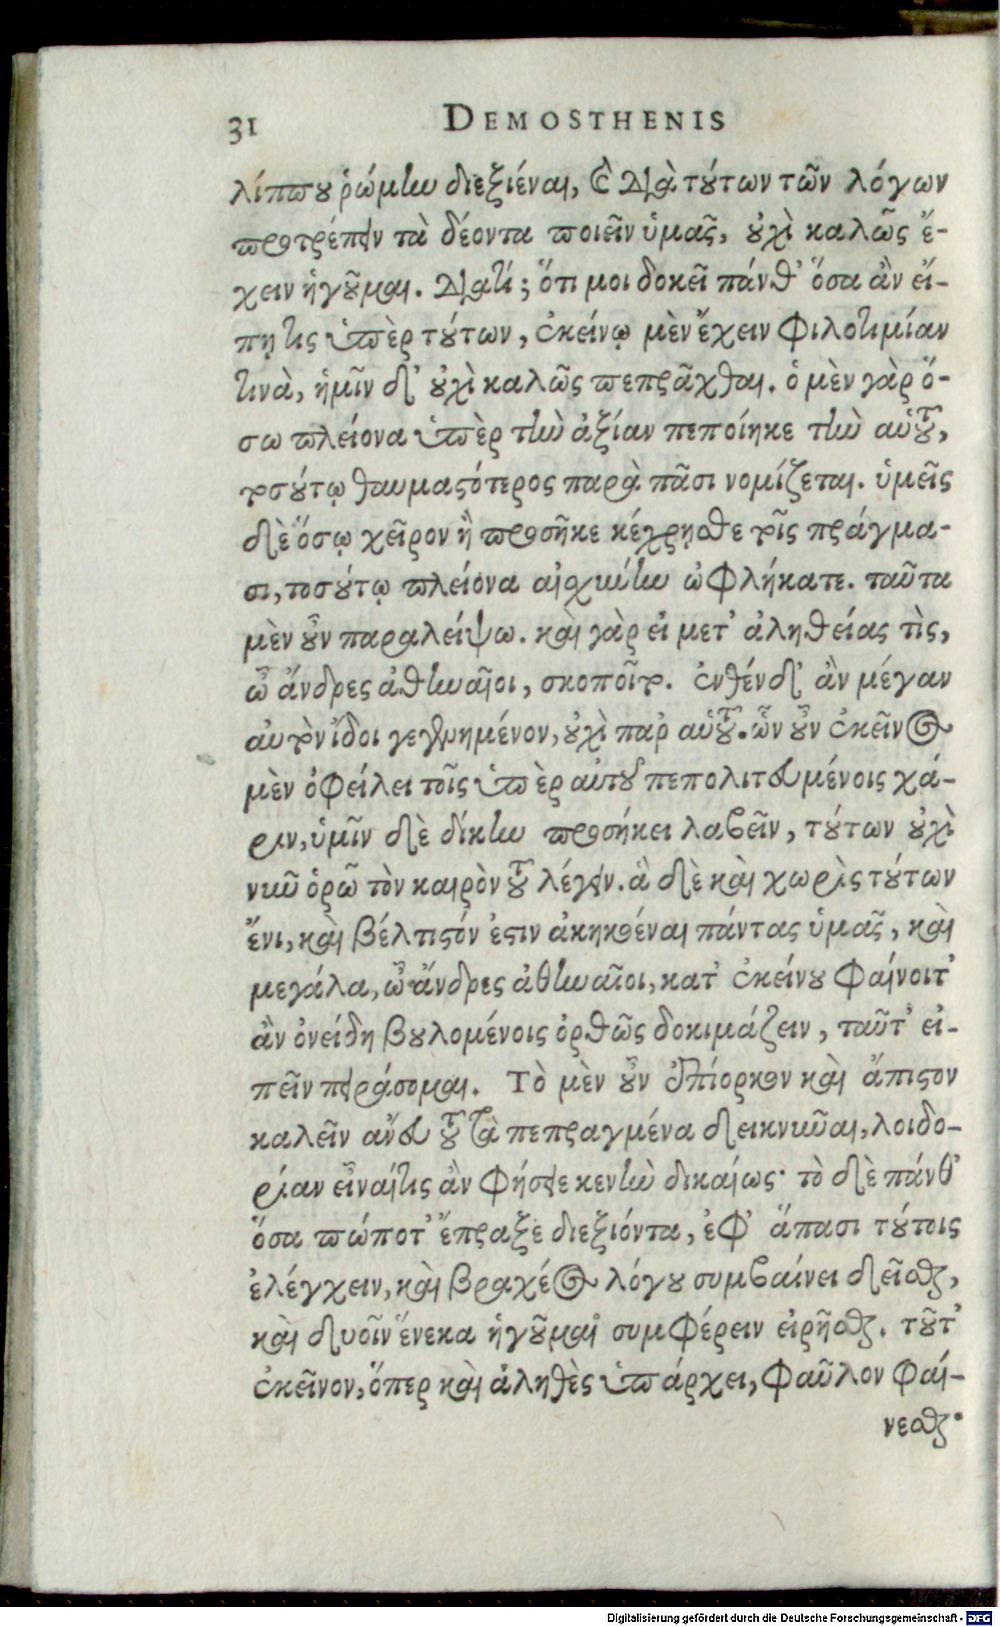 31 DEMOSTHENIS
λίππου ῥώμην διεξιέναι, καὶ διὰ τούτων τῶν λόγων
προτρέπειν τὰ δέοντα ποιεῖν ὑμᾶς, οὐχὶ καλῶς ἔ-
χειν ἡγοῦμαι. διατί; ὅτι μοι δοκεῖ πάνθ' ὅσα ἂν εἴ-
πῃ τις ὑπὲρ τούτων, ἐκείνῳ μὲν ἔχειν φιλοτιμίαν
τινὰ, ἡμῖν δ' οὐχὶ καλῶς πεπρᾶχθαι. ὁ μὲν γὰρ ὅ-
σω πλείονα ὑπὲρ τὴν ἀξίαν πεποίηκε τὴν αὑτοῦ,
τοσούτῳ θαυμαστότερος παρὰ πᾶσι νομίζεται. ὑμεῖς
δὲ ὅσῳ χεῖρον ἢ προσῆκε κέχρησθε τοῖς πράγμα-
σι, τοσούτῳ πλείονα αἰσχύνην ὠφλήκατε. ταῦτα
μὲν οὖν παραλείψω. καὶ γὰρ εἰ μετ' ἀληθείας τὶς,
ὦ ἄνδρες ἀθηναῖοι, σκοποῖτο. ἐνθένδ' ἂν μέγαν
αὐτὸν ἴδοι γεγενημένον, οὐχὶ παρ' αὑτοῦ. ὧν οὖν ἐκεῖνος
μὲν ὀφείλει τοῖς ὑπὲρ αὐτοῦ πεπολιτευμένοις χά-
ριν, ὑμῖν δὲ δίκην προσήκει λαβεῖν, τούτων οὐχὶ
νῦν ὁρῶ τὸν καιρὸν τοῦ λέγειν. ἃ δὲ καὶ χωρὶς τούτων
ἔνι, καὶ βέλτιστόν ἐστιν ἀκηκοέναι πάντας ὑμᾶς, καὶ
μεγάλα, ὦ ἄνδρες ἀθηναῖοι, κατ' ἐκείνου φαίνοιτ'
ἂν ὀνείδη βουλομένοις ὀρθῶς δοκιμάζειν, ταῦτ' εἰ-
πεῖν πειράσομαι. Τὸ μὲν οὖν ἐπίορκον καὶ ἄπιστον
καλεῖν ἄνευ τοῦ τὰ πεπραγμένα δεικνύναι, λοιδο-
ρίαν εἶναί τις ἂν φήσειε κενὴν δικαίως· τὸ δὲ πάνθ'
ὅσα πώποτ' ἔπραξε διεξιόντα, ἐφ' ἅπασι τούτοις
ἐλέγχειν, καὶ βραχέος λόγου συμβαίνει δεῖσθαι,
καὶ δυοῖν ἕνεκα ἡγοῦμαι συμφέρειν εἰρῆσθαι. τοῦτ'
ἐκεῖνον, ὅπερ καὶ ἀληθὲς ὑπάρχει, φαῦλον φαί-
νεσθαι·
Digitalisierung gefördert durch die Deutsche Forschungsgemeinschaft - DFG